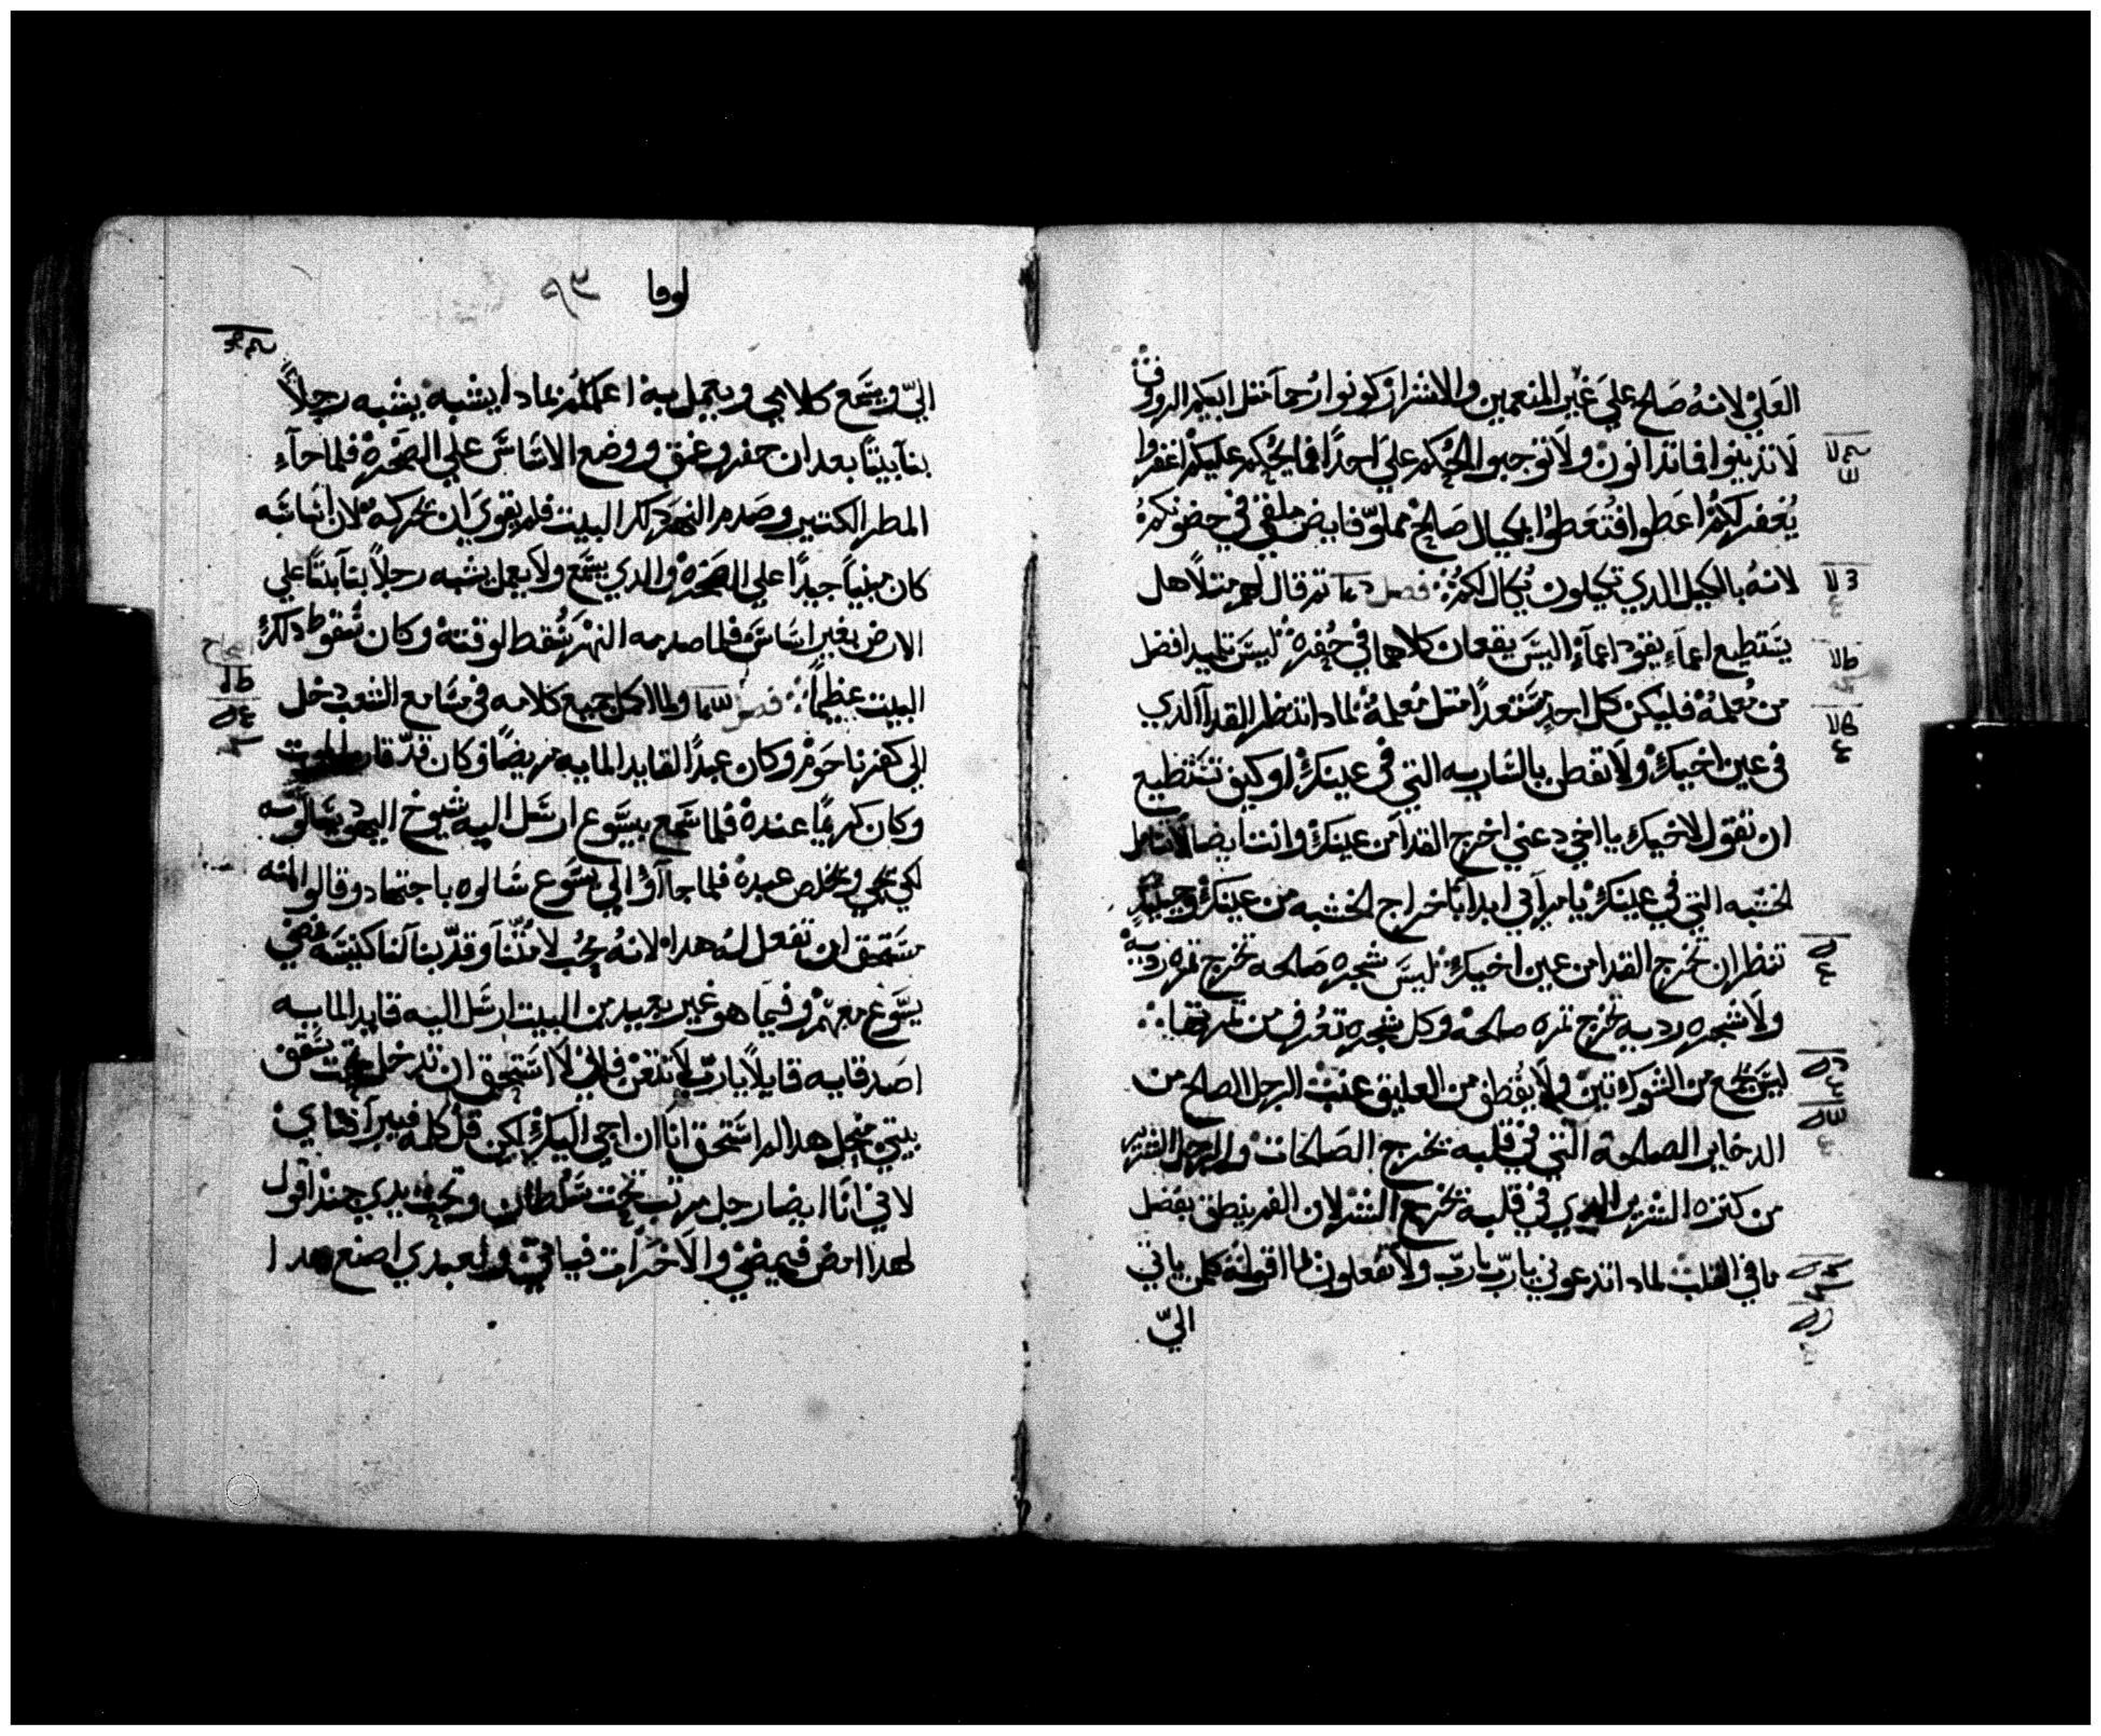 العلي لانه صالح علي غير المنعمين والاشرار كونوا رحما متل ابيكم الرووف
لا تدينوا فما تدانون ولا توجبوا الحكم علي احدا فما يحكم عليكم اغفروا
يغفر لكم اعطوا فتعطوا بمكيال صالح مملو فايض ملقي في حضونكم
لانه بالكيل الدي تكيلون يكال لكم فصل تم قال لهم متلا هل
يستطيع اعماء يقود اعماء اليس يقعان كلاهما في حفره ليس تلميد افضل
من معلمه فليكن كل احد مستعدا متل معلمه لمادا تنظر القدا الدي
في عين اخيك ولا تفطن بالساريه التي في عينك او كيف تستطيع
ان تقول لاخيك يا اخي دعني اخرج القدا من عينك وانت ايضا لا تتامل
الخشبه التي في عينك يا مرآي ابدا باخراج الخشبه من عينك وحينيد
تنظر ان تخرج القدا من عين اخيك ليس شجره صالحه تخرج تمره رديه
ولا شجره رديه تخرج تمره صالحه وكل شجره تعرف من تمرتها
ليس يجمع من الشوك تين ولا يقطف من العليق عنب الرجل الصالح من
الدخاير الصالحة التي في قلبه يخرج الصالحات والرجل الشرير
من كنزه الشرير الدي في قلبه يخرج الشر لان الفم ينطق بفضل
ما في القلب لمادا تدعوني يا رب يا رب ولا تفعلون لما اقوله كلمن ياتي
اليّ
لوقا ٩٣
اليّ ويسمع كلامي ويعمل به اعلمكم بمادا يشبه يشبه رجلاً
بنا بيتا بعد ان حفر وغمق ووضع الاساس علي الصخره فلما جاء
المطر الكتير وصدم النهر دلك البيت فلم يقوي ان يحركه لان اساسه
كان مبنيا جيدا علي الصخره والدي يسمع ولا يعمل يشبه رجلاً بنا بيتا علي
الارض بغير اساس فلما صدمه النهر سقط لوقته وكان سقوط دلك
البيت عظيما فصل ولما اكمل جميع كلامه في مسامع الشعب دخل
الي كفرناحوم وكان عبدا لقايد المايه مريضا وكان قد قارب الموت
وكان كريما عنده فلما سمع بيسوع ارسل اليه شيوخ اليهود يسالونه
لكي يجي ويخلص عبده فلما جاآوا الي يسوع سالوه باجتهاد وقالوا انه
مستحق ان تفعل له هدا لانه يحب لامتنا وقد بنا لنا كنيسه فمضي
يسوع معهم وفيما هو غير بعيد من البيت ارسل اليه قايد المايه
اصدقايه قايلاً يا رب لا تتعن فاني لا استحق ان تدخل تحت سقف
بيتي من اجل هدا لم استحق انا ان اجي اليك لكن قل كلمه فيبرا فتاي
لاني انا ايضا رجل مرتب تحت سلطان وتحت يدي جند اقول
لهدا امض فيمضي والاخر ات فياتي ولعبدي اصنع هدا